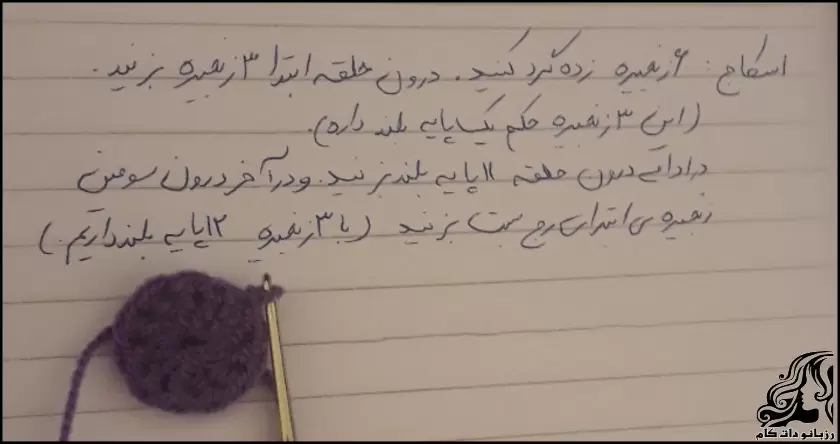 اسکاج : ۶ زنجیره زده گرد کنید. درون حلقه ابتدا ۳ زنجیره بزنید.
(این ۳ زنجیره حکم یک پایه بلند داره).
در ادامه درون حلقه ۱۱ پایه بلند بزنید. و در آخر درون سومین
زنجیره ی ابتدای رج بست بزنید (با ۳ زنجیره ۱۲ پایه بلند داریم.)
رزبانو دات کام